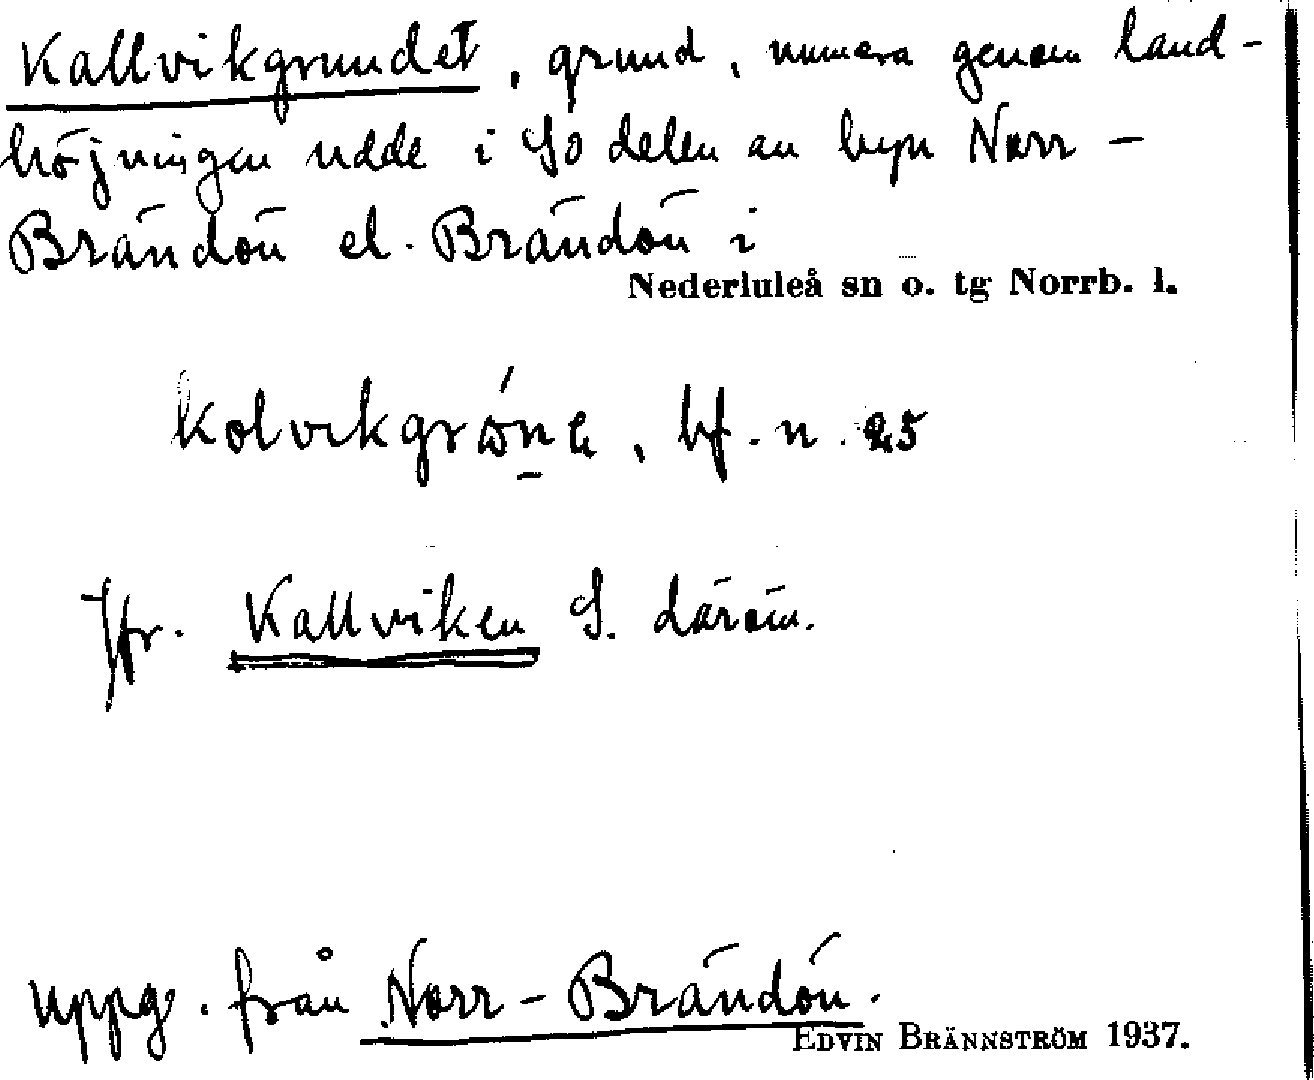 Kallvikgrundet, grund, numera genom land-
höjningen udde i SO delen av byn Norr-
Brändön el. Brändön i
Nederluleå sn o. tg Norrb. l.
kolvikgrớṉa, bf. n. 25
Jfr. Kallviken S. därom.
uppg. från Norr-Brändön.
EDVIN BRÄNNSTRÖM 1937.